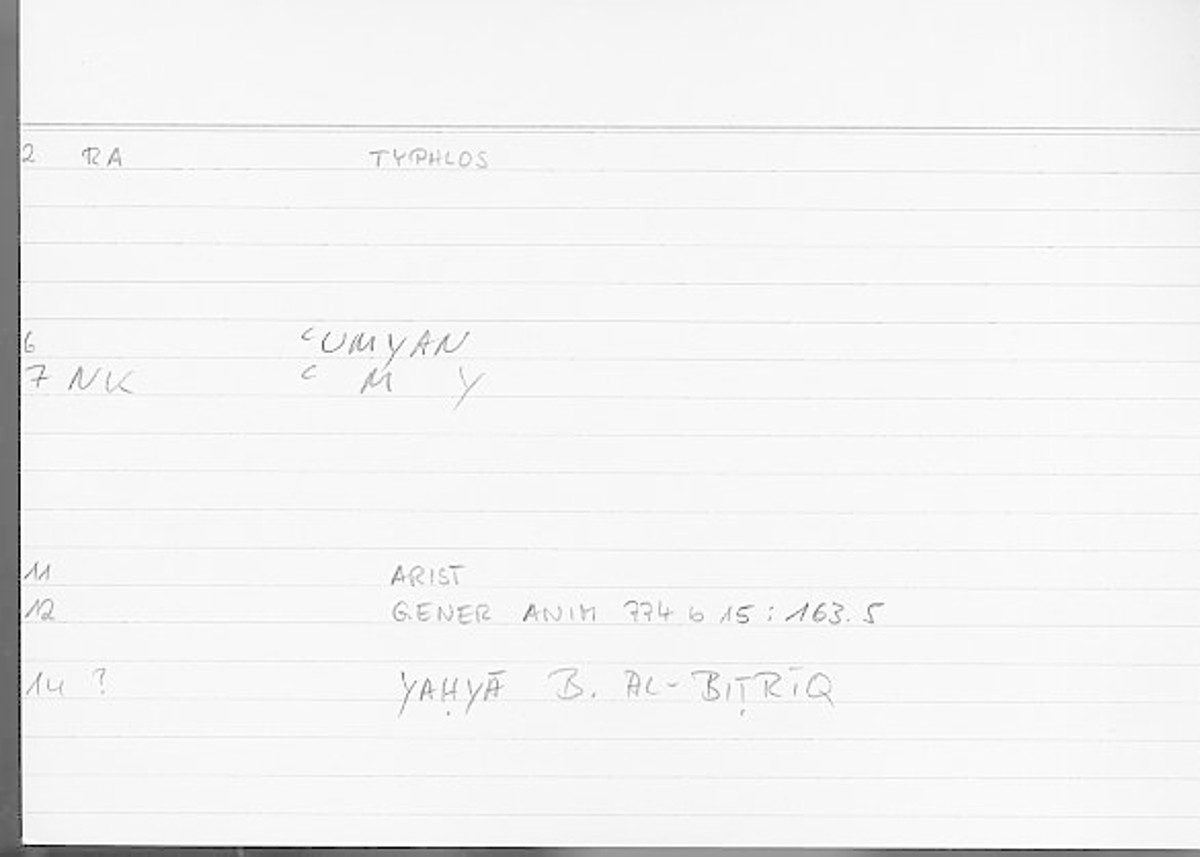 2 RA TYPHLOS
6 ʿUMYAN
7 NK ʿ M Y
11 ARIST
12 GENER ANIM 774 b 15 : 163.5
14 ? YAḤYĀ B. AL-BIṬRĪQ